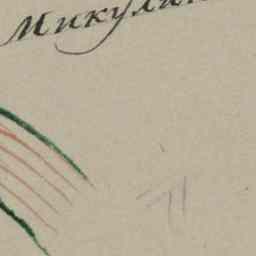 Микулин